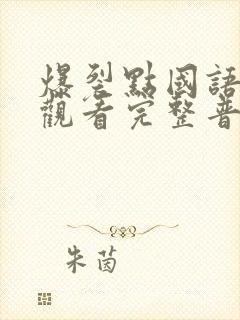 爆裂點國語
觀看完整普
朱茵